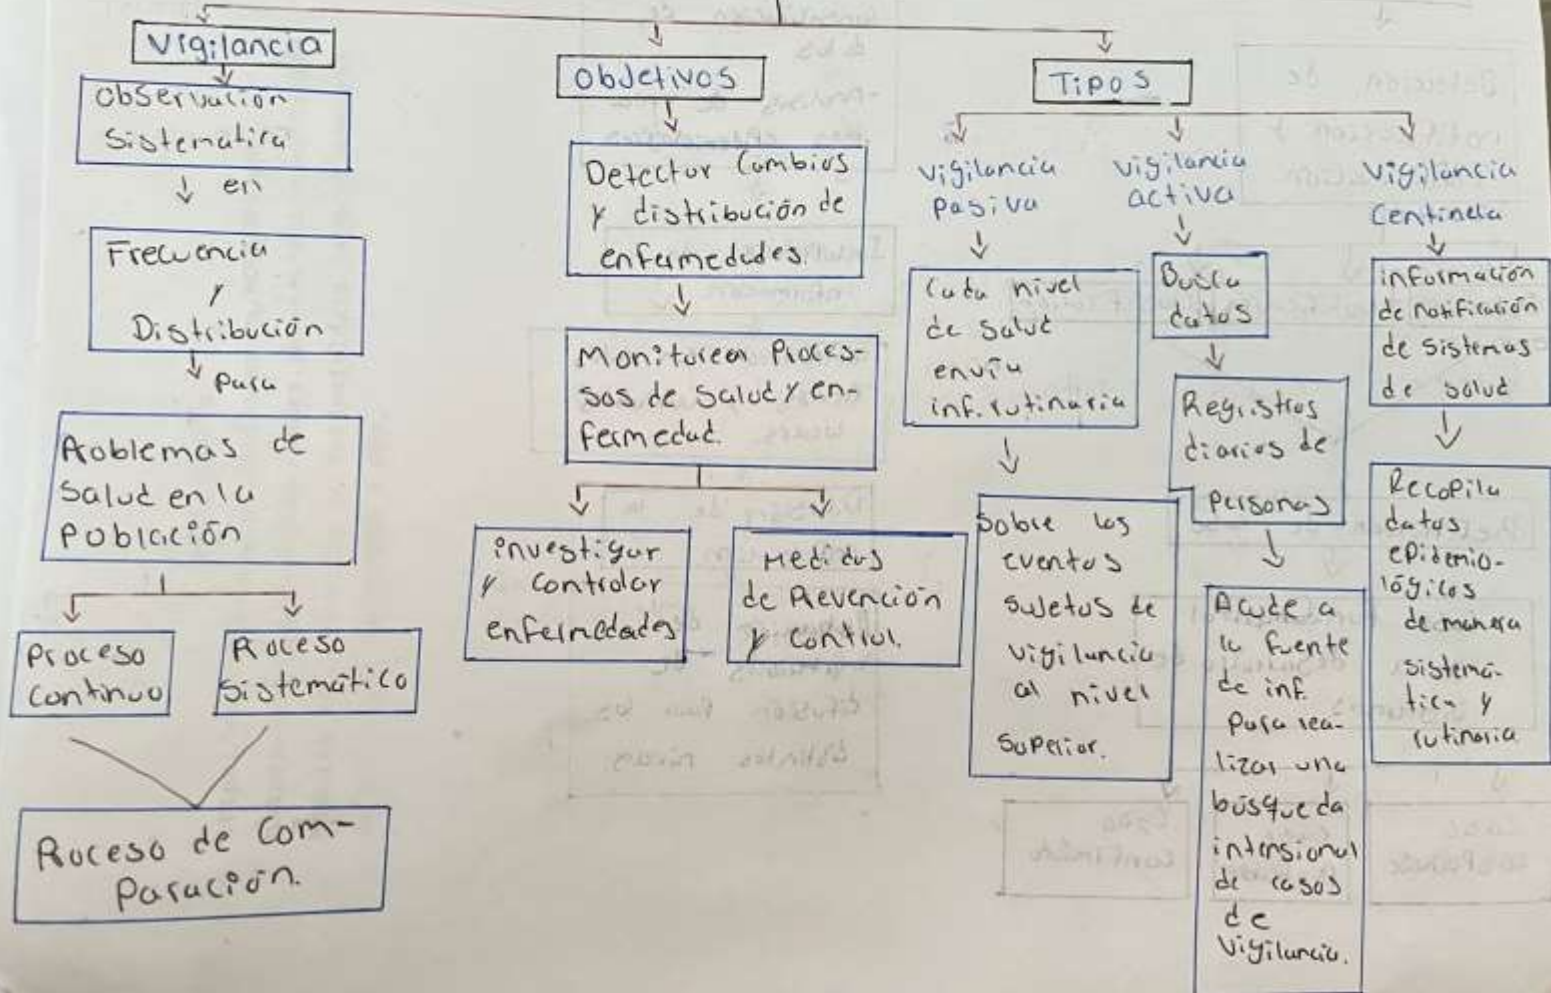 Vigilancia
Observación
Sistematica
en
Frecuencia
y
Distribución
para
Problemas de
Salud en la
Población
Proceso
Continuo
Proceso
Sistemático
Proceso de Com-
paración.
Objetivos
Detectar Cambios
y distribución de
enfermedades.
Monitoreen Proces-
sos de Salud y en-
fermedad.
investigar
y controlar
enfermedades
Medidas
de Prevención
y Control.
Tipos
Vigilancia
Pasiva
Cada nivel
de Salud
envía
inf. rutinaria
Sobre los
eventos
sujetos de
vigilancia
al nivel
superior.
Vigilancia
activa
Busca
datos
Registros
diarios de
personas
Acude a
la fuente
de inf.
para rea-
lizar una
búsqueda
intensional
de casos
de
vigilancia.
Vigilancia
Centinela
información
de notificación
de sistemas
de salud
Recopila
datos
epidemio-
lógicos
de manera
sistemá-
tica y
rutinaria